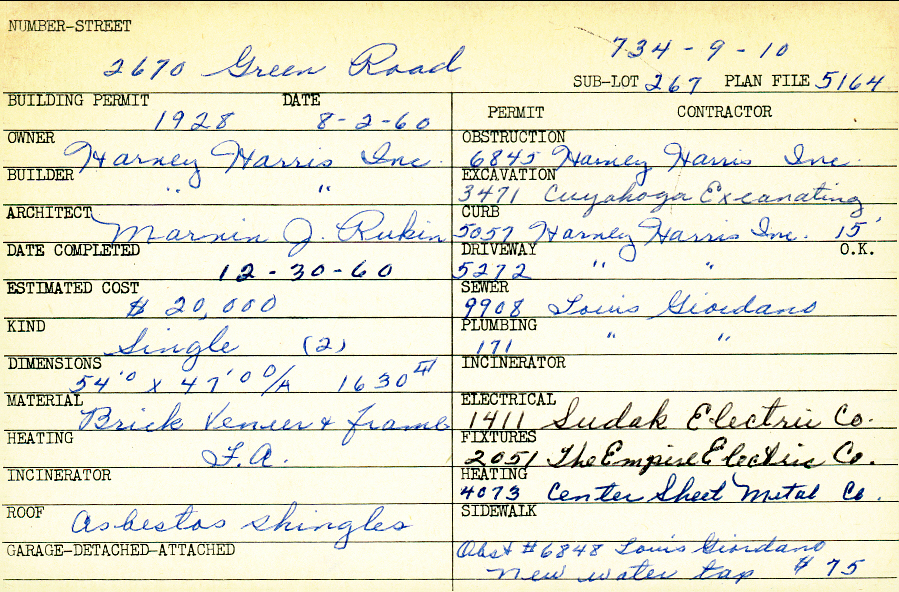 NUMBER-STREET
734-9-10
2670 Green Road
SUB-LOT 267 PLAN FILE 5164
BUILDING PERMIT DATE
1928 8-2-60
PERMIT CONTRACTOR
OWNER
Harney Harris Inc.
BUILDER
" "
ARCHITECT
Marnin J. Rukin
DATE COMPLETED
12-30-60
ESTIMATED COST
$ 20,000
KIND
Single (2)
DIMENSIONS
54'0 x 47'0 O/A 1630
MATERIAL
Brick Veneer & frame
HEATING
F.A.
INCINERATOR
ROOF
asbestos shingles
GARAGE-DETACHED-ATTACHED
OBSTRUCTION
6845 Harney Harris Inc.
EXCAVATION
3471 Cuyahoga Excavating
CURB
5057 Harney Harris Inc. 15'
DRIVEWAY O.K.
5272 " "
SEWER
9908 Louis Giordano
PLUMBING
171 " "
INCINERATOR
ELECTRICAL
1411 Sudak Electric Co.
FIXTURES
2051 The Empire Electric Co.
HEATING
4073 Center Sheet Metal Co.
SIDEWALK
Obst #6848 Louis Giordano
new water tap $75